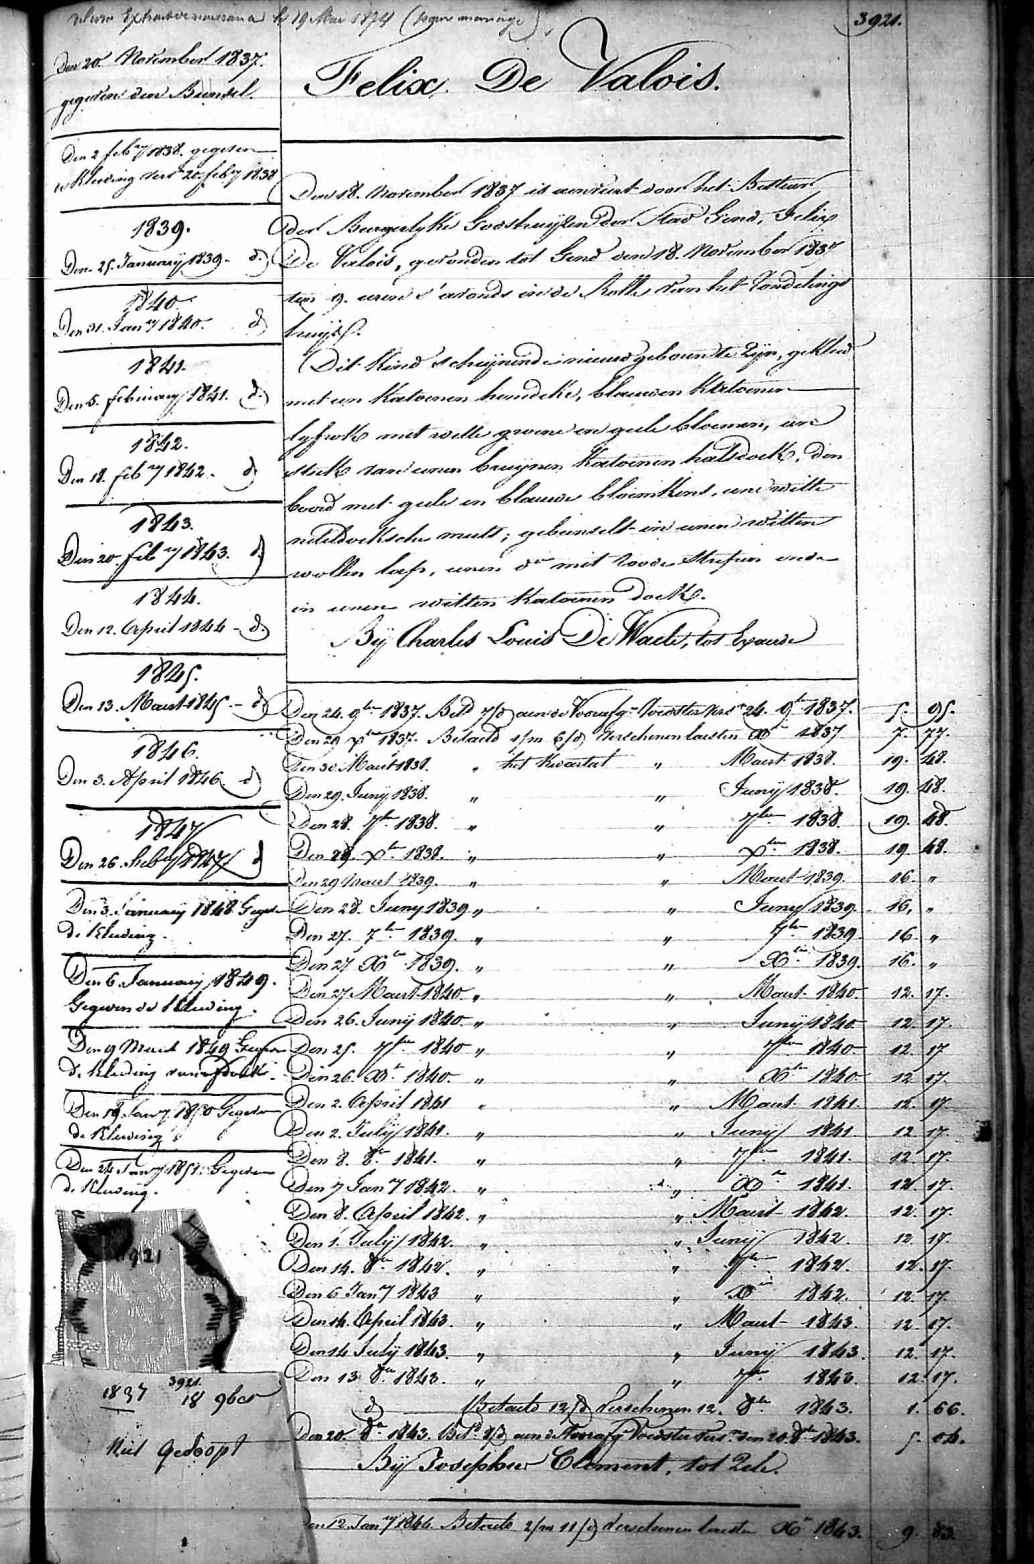 le 19 Mai 1874 (pour mariage)
3921.
Den 20. November 1837.
gegeven den Bunsel.
Den 2 feb.y 1838. gegeven
kleeding vers. 20. feb.y 1838
1839.
Den 25. January 1839. d.)
1840.
Den 31. Jan.y 1840. d)
1841.
Den 5. february 1841. d.)
1842.
Den 18. feb.y 1842. d)
1843.
Den 20. feb.y 1843. d)
1844.
Den 12. April 1844 - d.)
1845.
Den 13. Maart 1845. - d)
1846.
Den 3. April 1846 d)
1847
Den 26. feb.y 1847 d
Den 3. January 1848 Gegeven
de Kleeding.
Den 6. January 1849.
Gegeven de Kleeding.
Den 9 Maart 1849 Gegeven
de Kleeding
Den 19. Jan.y 1850 Gegeven
de Kleeding
Den 24 Jan.y 1851. Gegeven
de Kleeding.
3921
1837 3921. 18 9ber
Niet Gedoopt
Felix De Valois.
Den 18. November 1837 is aenveirt door het Bestuer
der Burgerlyke Godshuyzen der Stad Gend, Felix
De Valois, gevonden tot Gend den 18. November 1837
ten 9. uren s'avonds in de Rolle van het Vondelings
huys.
Dit Kind schynende nieuw geboren te Zyn, gekleed
met een Katoenen hemdeke, blauwen Katoenen
lyfrok met witte groene en geele bloemen, een
stuk van eenen bruynen Katoenen halsdoek, den
boord met geele en blauwe bloemkens, eene witte
neteldoeksche muts; gebunselt in eenen witten
wollen laps, eenen d.o met roode Strepen ende
in eenen witten Katoenen doek.
Bij Charles Louis De Waele, tot Exaerde
Den 24. 9ber 1837. Bet.d 7/d aen de Voorafg. Voedster vers. 24. 9ber 1837. 5. 95.
Den 29 Xber 1837. Betaeld 1/m 6/d verschenen laesten Xber 1837 7. 77.
Den 30 Maert 1838. " het kwartael " Maert 1838. 19. 48.
Den 29. Juny 1838. " " Juny 1838. 19. 48.
Den 28. 7ber 1838. " " 7ber 1838. 19. 48.
Den 28. Xber 1838. " " Xber 1838. 19 48.
Den 29 Maert 1839. " " Maert 1839. 16. "
Den 28. Juny 1839 " " Juny 1839. 16. "
Den 27. 7ber 1839. " " 7ber 1839. 16 "
Den 27 Xber 1839. " " Xber 1839. 16. "
Den 27 Maert 1840 " " Maert 1840. 12. 17.
Den 26. Juny 1840 " " Juny 1840 12. 17.
Den 25. 7ber 1840 " " 7ber 1840 12. 17
Den 26. Xber 1840. " " Xber 1840 12 17.
Den 2. April 1841 " " Maert 1841. 12. 17.
Den 2. July 1841. " " Juny 1841 12 17.
Den 8. 8ber 1841. " " 7ber 1841. 12. 17.
Den 7 Jan.y 1842. " " Xber 1841. 12. 17.
Den 8. April 1842. " " Maert 1842. 12. 17.
Den 1. July 1842. " " Juny 1842 12. 17.
Den 14. 8ber 1842. " " 7ber 1842. 12. 17.
Den 6 Jan.y 1843 " " Xber 1842. 12. 17.
Den 14. April 1843. " " Maert 1843. 12. 17.
Den 14 July 1843. " " Juny 1843. 12. 17.
Den 13. 8ber 1843. " " 7ber 1843. 12. 17.
d) Betaeld 12/d verschenen 12. 8ber 1843. 1. 66.
Den 20. 8ber 1843. Bet.d 8/d aen de Voorafg. Voedster vers. den 20. 8ber 1843. 5. 04.
Bij Josephus Clement, tot Zele.
Den 12. Jan.y 1844 Betaeld 2/m 11/d verschenen laesten Xber 1843. 9. 83.